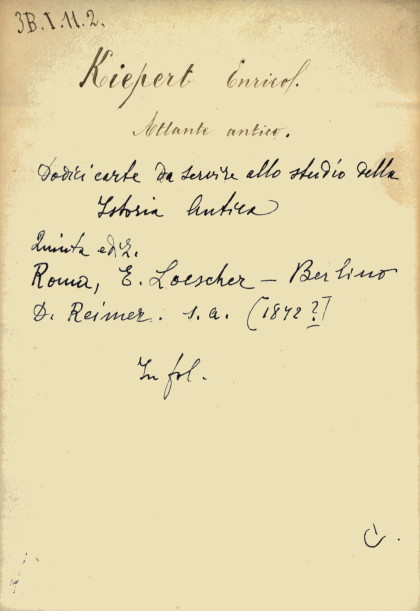 3B.I.11.2.
Kiepert Enrico.
Atlante antico.
Dodici carte da servire allo studio della
Istoria Antica
Quinta ediz.
Roma, E. Loescher – Berlino
D. Reimer. s.a. (1872?)
In fol.